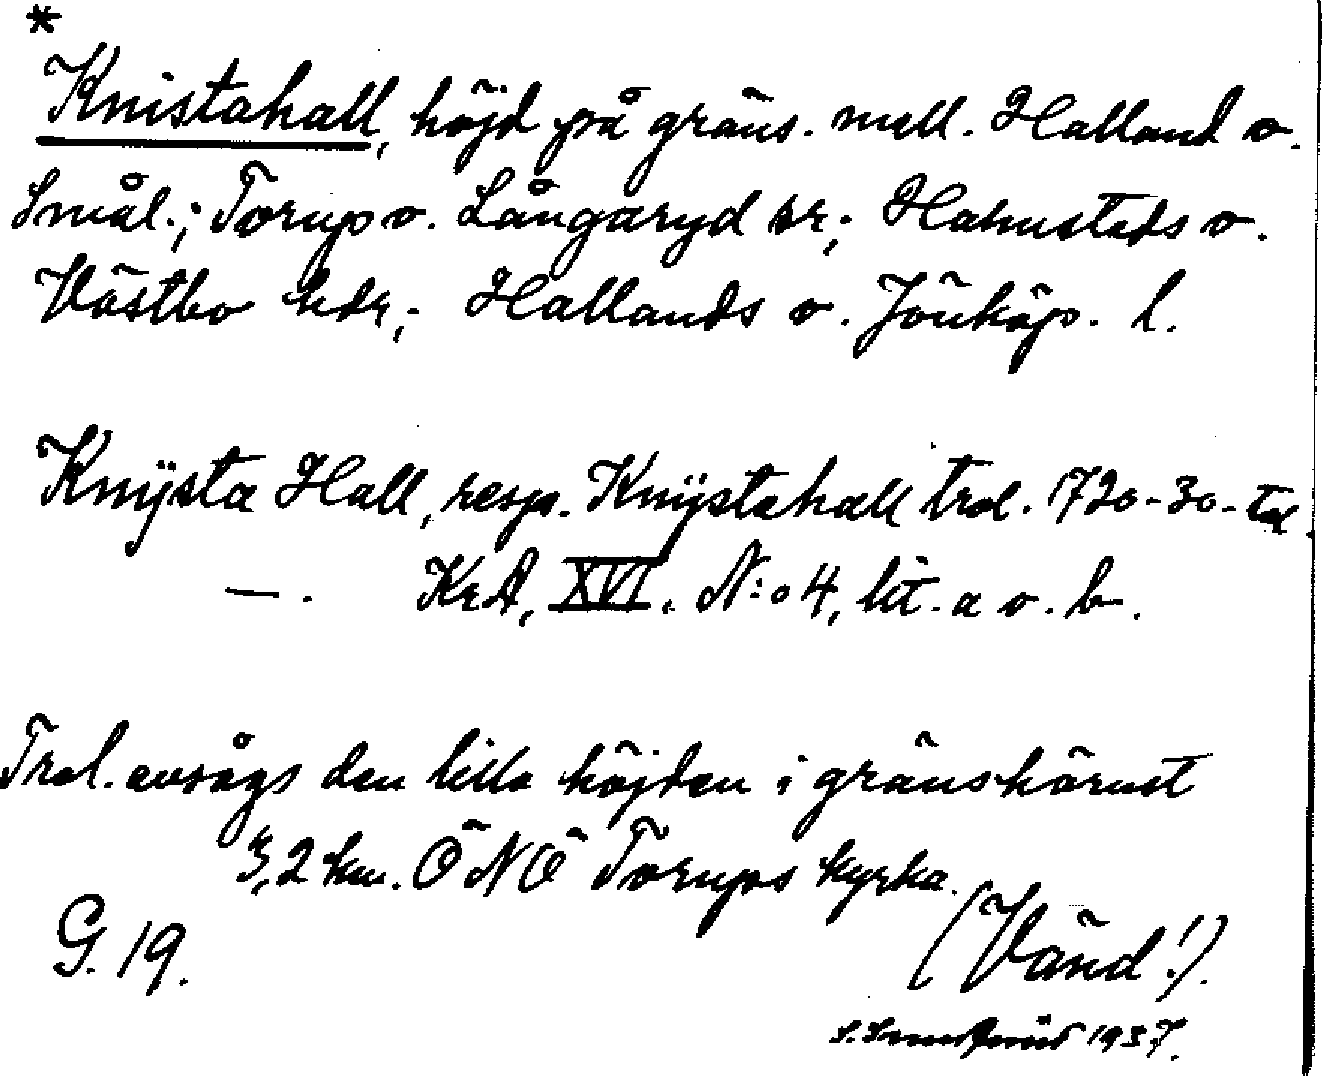 *
Knistahall, höjd på gräns. mell. Halland o.
Smål.; Torup o. Långaryd sr; Halmstads o.
Västbo hdr; Hallands o. Jönköp. l.
Knÿsta Hall, resp. Knÿstahall trol. 1720-30-tal
—. KrA, XVI. N:o 4, lit. a o. b.
Trol. avsågs den lilla höjden i gränshörnet
3,2 km. ÖNÖ Torups kyrka.
(Vänd!).
G. 19.
1937.